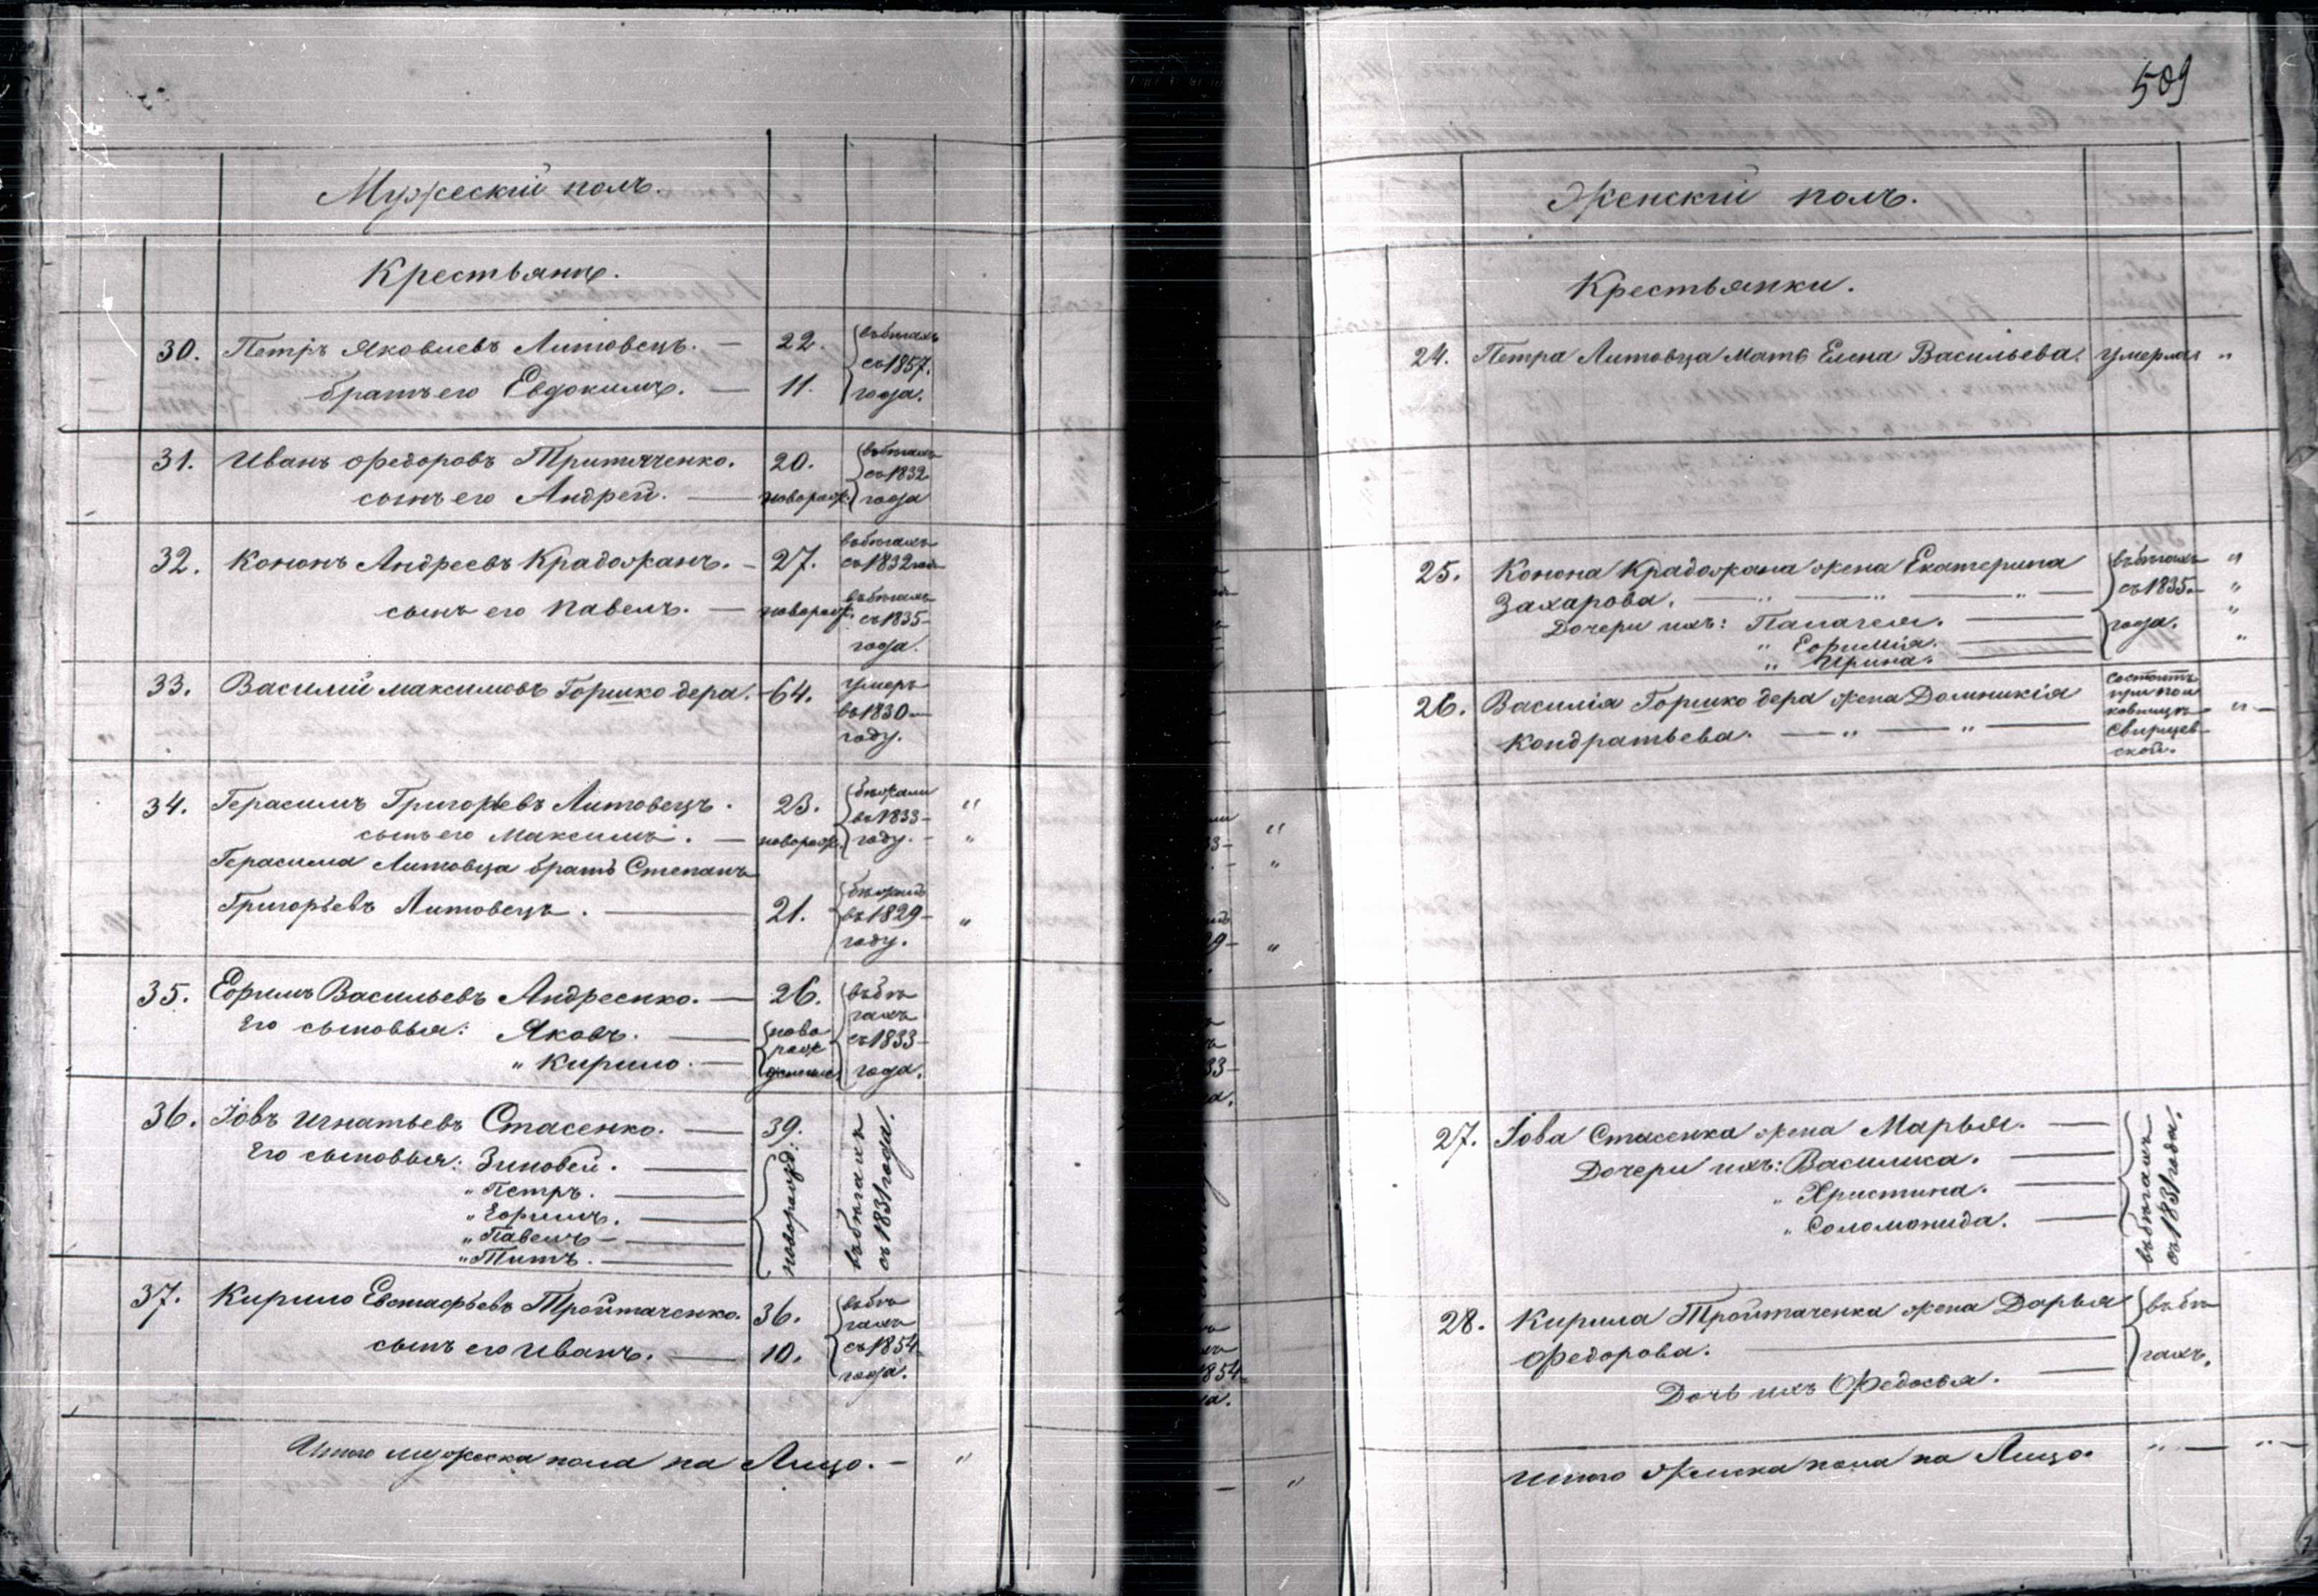 Мужескій полъ.
Крестьяне.
30. Петръ Яковлевъ Литовецъ. — 22. въ бѣгахъ
съ 1857.
братъ его Евдокимъ. — 11. года.
31. Иванъ Федоровъ 20. въ бѣгахъ
съ 1832
сынъ его Андрей. — новорожд. года
32. Кононъ Андреевъ Крадожанъ. — 27. въ бѣгахъ
съ 1832 года
сынъ его Павелъ. — новорожд. въ бѣгахъ
съ 1835 —
года.
33. Василій Максимовъ Горшкодера. — 64. умеръ
въ 1830 —
году.
34. Герасимъ Григорьевъ Литовецъ. 23. бѣжали "
въ 1833 —
сынъ его Максимъ. — новорожд. году. — "
Герасима Литовца братъ Степанъ
Григорьевъ Литовецъ. — 21. бѣжалъ
въ 1829 — "
году.
35. Ефимъ Васильевъ Андреенко. — 26. въ бѣ
гахъ
Его сыновья: Яковъ. — ново
рож съ 1833 —
" Кирило. — денные года.
36. Іовъ Игнатьевъ Стасенко. — 39.
Его сыновья: Зиновей. — новорожд. въ бѣгахъ
съ 1831 года.
" Петръ. —
" Ефимъ. —
" Павелъ —
" Титъ. —
37. Кирило Евстафьевъ Тройтаченко. 36. въ бѣ
гахъ
сынъ его Иванъ. — 10. съ 1854 —
года.
Итого мужеска пола на Лицо. — "
509
Женскій полъ.
Крестьянки.
24. Петра Литовца Мать Елена Васильева. умерла "
25. Конона Крадожана жена Екатерина въ бѣгахъ "
Захарова. — " — " — " — съ 1835 — "
Дочери ихъ: Палагея. — года. "
" Ефимія. — "
" Ирина. —
26. Василія Горшкодера жена Домникія состоитъ
при пол
ковницѣ " —
Кондратьева. — " — " — Свирщев
ской.
27. Іова Стасенка жена Марья. — въ бѣгахъ
съ 1831 года.
Дочери ихъ: Василиса. —
" Христина. —
" Соломонида. —
28. Кирила Тройтаченка жена Дарья въ бѣ
Федорова. — гахъ.
Дочь ихъ Федосья. —
Итого женска пола на Лицо. " — " —